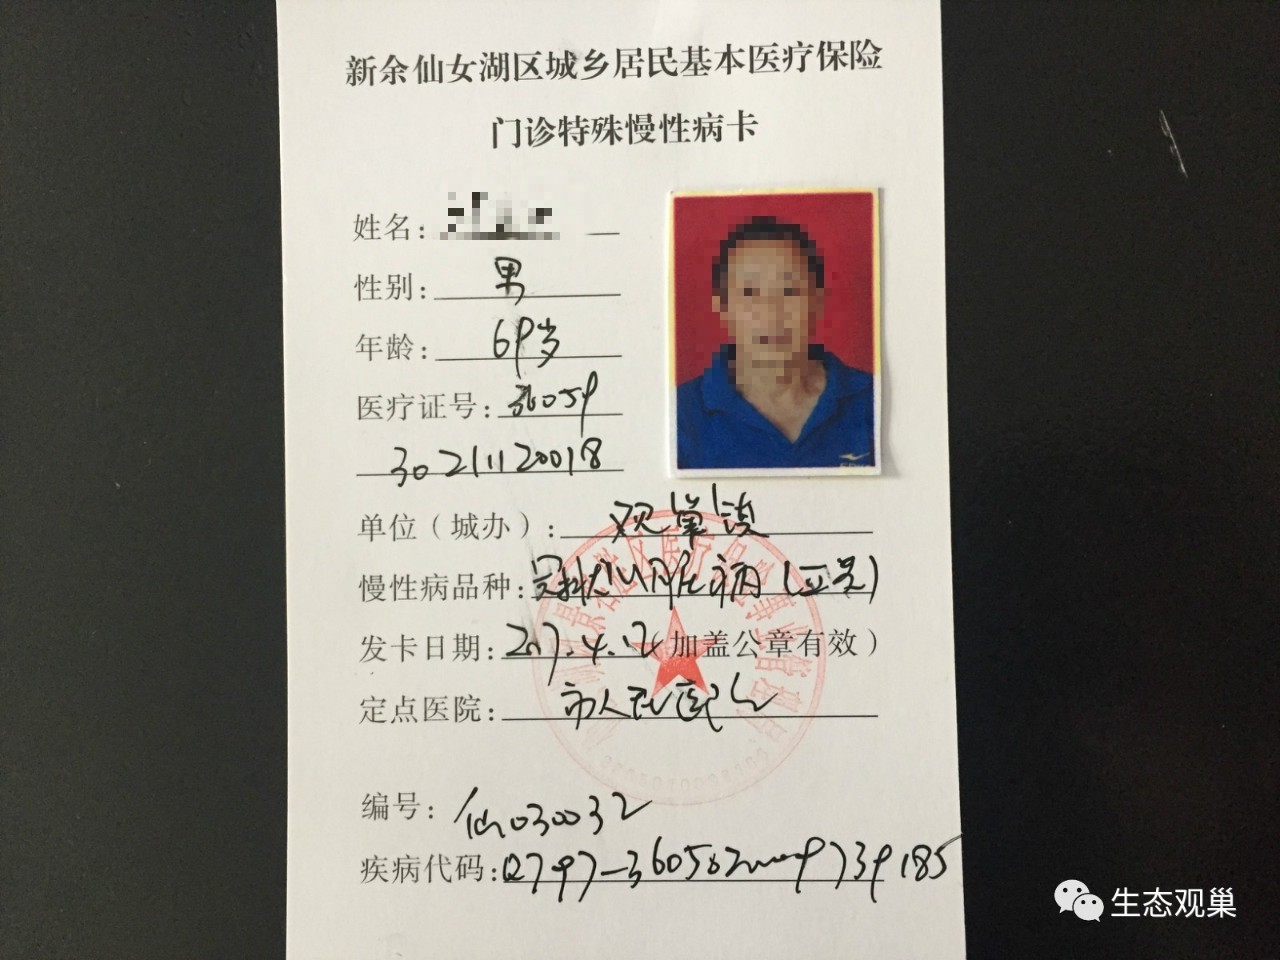 新余仙女湖区城乡居民基本医疗保险
门诊特殊慢性病卡
姓名：
性别：男
年龄：69岁
医疗证号：36059
3021120018
单位（城办）：观巢镇
慢性病品种：冠状动脉病
发卡日期：2017.4.12（加盖公章有效）
定点医院：市人民医院
编号：仙030032
疾病代码：
生态观巢